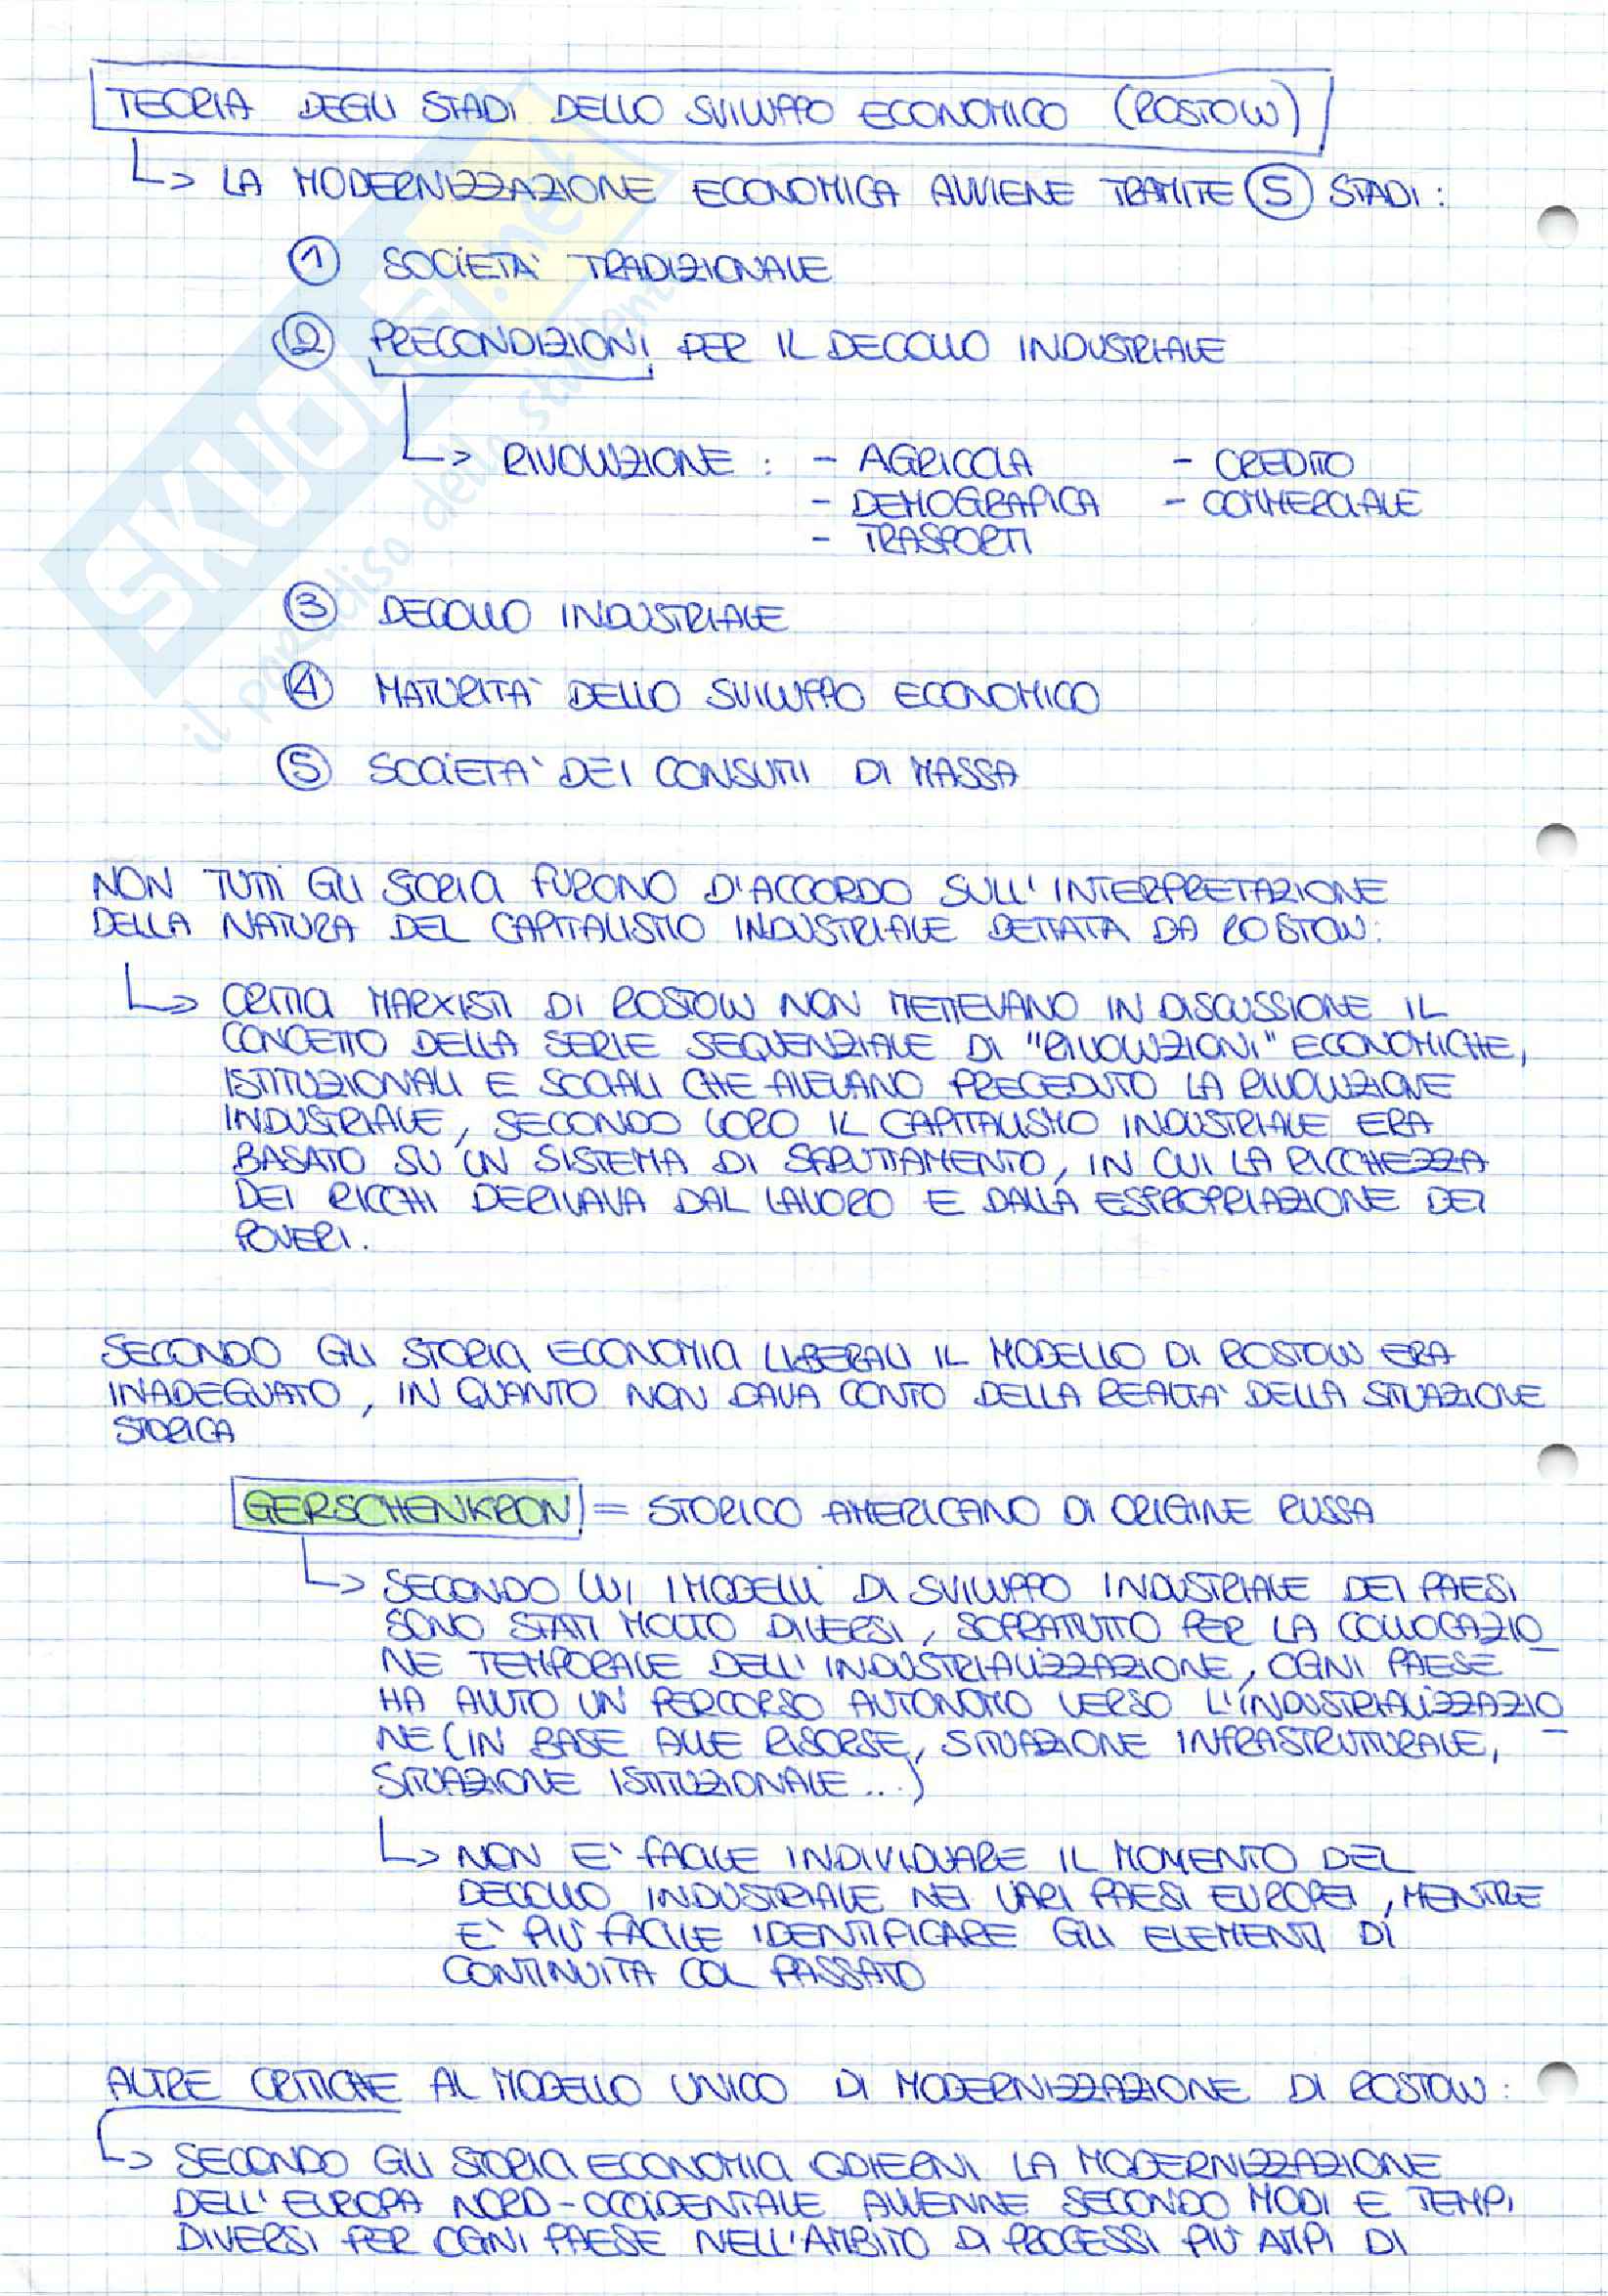 TEORIA DEGLI STADI DELLO SVILUPPO ECONOMICO (ROSTOW)
↳ LA MODERNIZZAZIONE ECONOMICA AVVIENE TRAMITE 5 STADI:
1 SOCIETA' TRADIZIONALE
2 PRECONDIZIONI PER IL DECOLLO INDUSTRIALE
↳ RIVOLUZIONE: - AGRICOLA - CREDITO
- DEMOGRAFICA - COMMERCIALE
- TRASPORTI
3 DECOLLO INDUSTRIALE
4 MATURITA' DELLO SVILUPPO ECONOMICO
5 SOCIETA' DEI CONSUMI DI MASSA
NON TUTTI GLI STORICI FURONO D'ACCORDO SULL'INTERPRETAZIONE
DELLA NATURA DEL CAPITALISMO INDUSTRIALE DETTATA DA ROSTOW:
↳ CRITICI MARXISTI DI ROSTOW NON METTEVANO IN DISCUSSIONE IL
CONCETTO DELLA SERIE SEQUENZIALE DI "RIVOLUZIONI" ECONOMICHE,
ISTITUZIONALI E SOCIALI CHE AVEVANO PRECEDUTO LA RIVOLUZIONE
INDUSTRIALE, SECONDO LORO IL CAPITALISMO INDUSTRIALE ERA
BASATO SU UN SISTEMA DI SFRUTTAMENTO, IN CUI LA RICCHEZZA
DEI RICCHI DERIVAVA DAL LAVORO E DALLA ESPROPRIAZIONE DEI
POVERI.
SECONDO GLI STORICI ECONOMICI LIBERALI IL MODELLO DI ROSTOW ERA
INADEGUATO, IN QUANTO NON DAVA CONTO DELLA REALTA' DELLA SITUAZIONE
STORICA
GERSCHENKRON = STORICO AMERICANO DI ORIGINE RUSSA
↳ SECONDO LUI I MODELLI DI SVILUPPO INDUSTRIALE DEI PAESI
SONO STATI MOLTO DIVERSI, SOPRATUTTO PER LA COLLOCAZIO_
NE TEMPORALE DELL'INDUSTRIALIZZAZIONE, OGNI PAESE
HA AVUTO UN PERCORSO AUTONOMO VERSO L'INDUSTRIALIZZAZIO_
NE (IN BASE ALLE RISORSE, SITUAZIONE INFRASTRUTTURALE,
SITUAZIONE ISTITUZIONALE...)
↳ NON E' FACILE INDIVIDUARE IL MOMENTO DEL
DECOLLO INDUSTRIALE NEI VARI PAESI EUROPEI, MENTRE
E' PIU' FACILE IDENTIFICARE GLI ELEMENTI DI
CONTINUITA COL PASSATO
ALTRE CRITICHE AL MODELLO UNICO DI MODERNIZZAZIONE DI ROSTOW:
↳ SECONDO GLI STORICI ECONOMICI ODIERNI LA MODERNIZZAZIONE
DELL'EUROPA NORD-OCCIDENTALE AVVENNE SECONDO MODI E TEMPI
DIVERSI PER OGNI PAESE NELL'AMBITO DI PROCESSI PIU' AMPI DI
SKUOLA.net
il paradiso dello studente